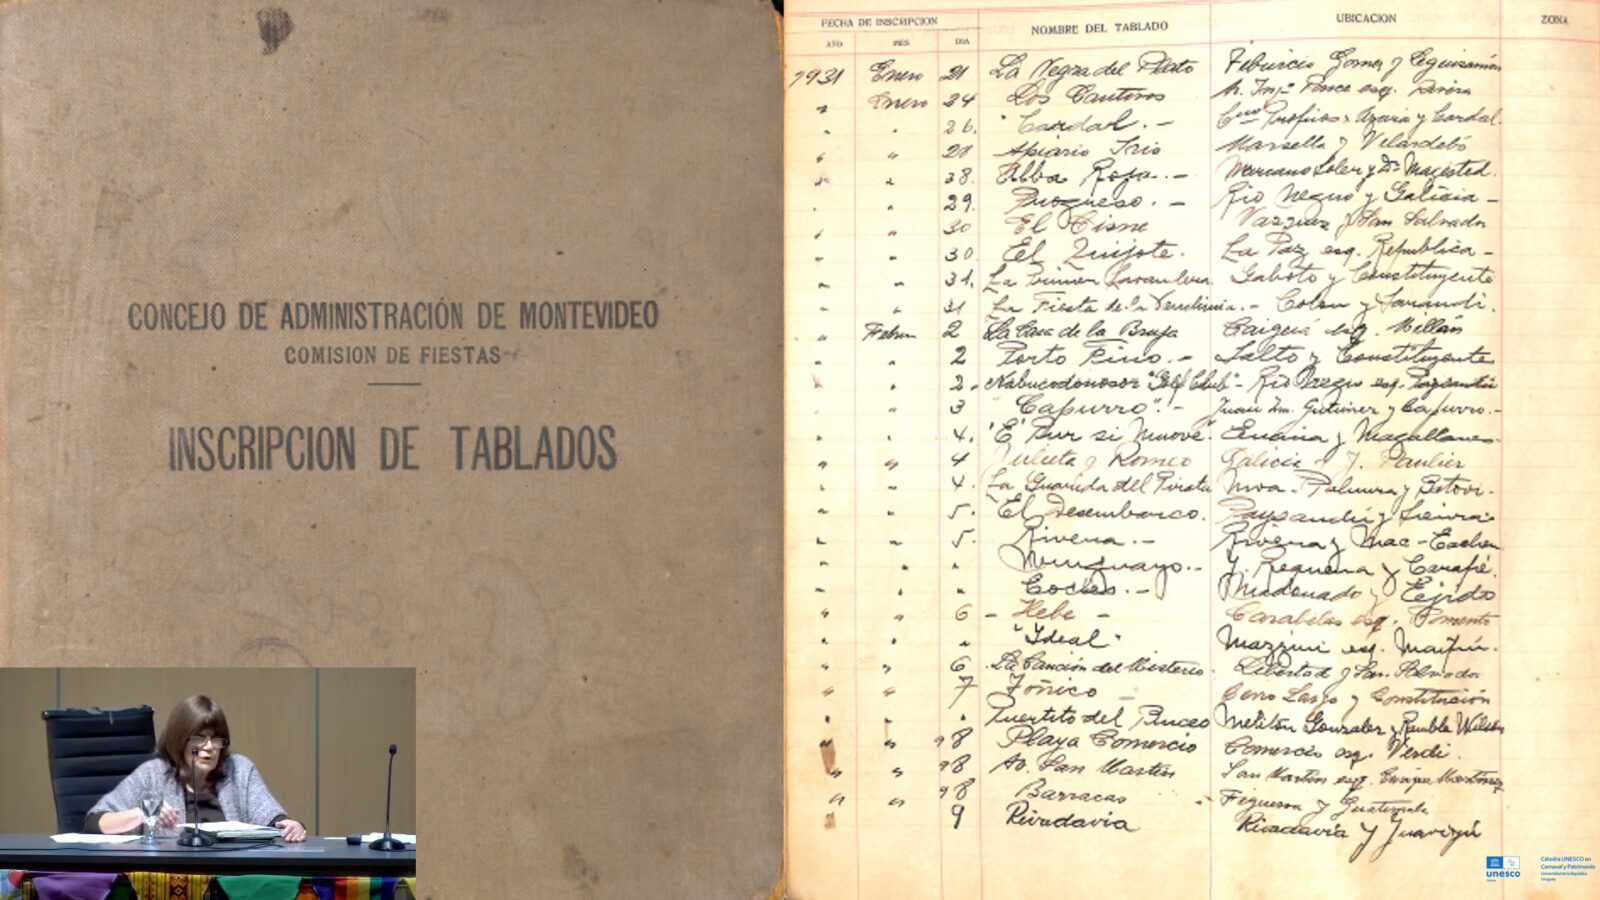 CONCEJO DE ADMINISTRACIÓN DE MONTEVIDEO
COMISION DE FIESTAS
INSCRIPCION DE TABLADOS
FECHA DE INSCRIPCION NOMBRE DEL TABLADO UBICACION ZONA
AÑO MES DIA
1931 Enero 21 La Negra del Plata Tiburcio Gomez y Eguisamin
" Enero 24 Los Cauteros
" " 26. "Cardal. - y Cardal.
" " 28 Apiario Trio Marsella y Velardebó
" " 28. Alba Roja. - Mariano Soler y
" " 29. Progreso. - Rio Negro y Galicia -
" " 30 El Cisne Vazquez y San Salvador
" " 30 El Quijote. La Paz esq. Republica -
" " 31. La Gaboto y Constituyente
" " 31 La Fiesta de la Vendimia. - Colon y Sarandi.
" 2 La Casa de la Bruja Caigua esq. Millán
2 Porto Fino. - Salto y Constituyente
" " 2. Nabucodonosor "Golf Club" - Rio Negro esq. Paysandú
" 3 Capurro". - Juan Ma. Gutierrez y Capurro. -
" " 4. "E' Pur si Muove" y Magallanes.
" " 4 Julieta y Romeo Galicia y J. Paulier
" " 4. La Guarida del Pirata Nva. Palmira y
" " 5. "El Desembarco. Paysandú y
" " 5. Rivera. - Rivera y Mac-Eachen
" " " J. Requena y
" " " Cocles. - Maldonado y Ejido
" " 6 - Hebe - Carabelas esq. Pimento
" " " "Ideal" Mazzini esq. Maipú.
" " 6 La Canción del Misterio. Libertad y San Salvador
" " 7 Jónico - Cerro Largo y Constitución
" " " Puertito del Buceo Meliton Gonzalez y Rambla Wilson
" " " 8 Playa Comercio Comercio esq. Verdi.
" " " 8 Av. San Martin San Martin esq. Enrique Martinez
" " " 8 Barracas Figueroa y Guatemala
" 9 Rivadavia Rivadavia y
unesco
Cátedra UNESCO en
Carnaval y Patrimonio
Universidad de la República
Uruguay